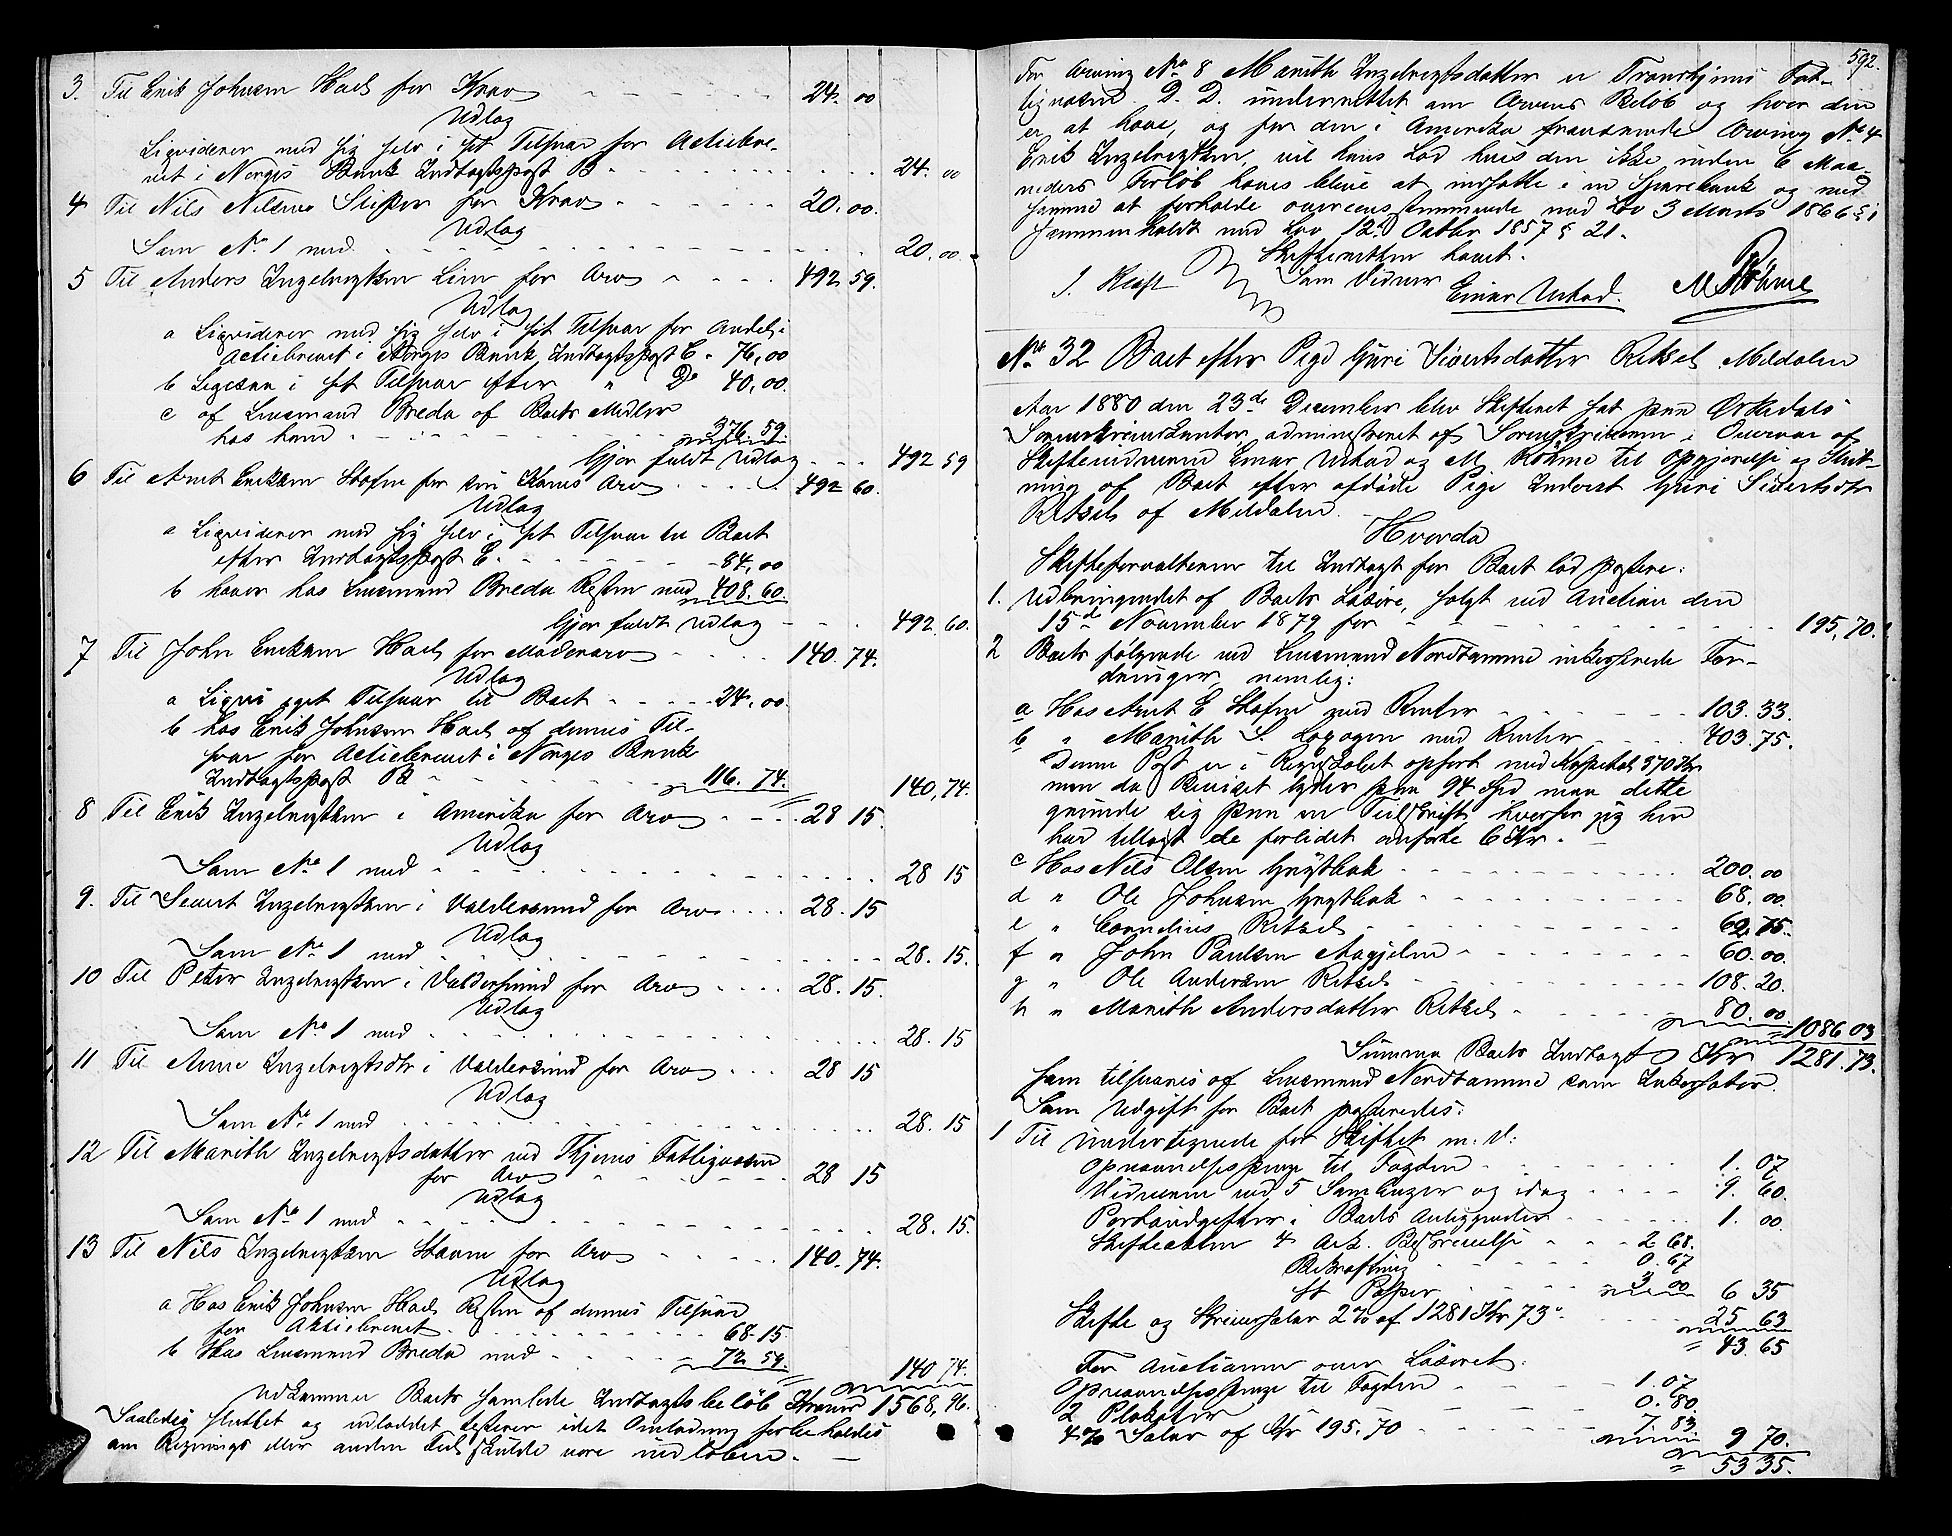 3. Til Erik Johnsen Hoel for Krav - - - - 24. 00
Udlag
Ligviderer med sig selv i sit Tilsvar for Actiebre-
vet i Norges Bank Indtægtspost B - - - - 24. 00
4 Til Nils Nilsen for Krav - - - - 20. 00.
Udlag
Som No 1 med - - - - 20. 00.
5 Til Anders Ingebrigtsen Lien for Arv - - - - 492 59.
Udlag
a Ligviderer med sig selv i sit Tilsvar for Andel i
Actiebrevet i Norges Bank, Indtægtspost C - 76,00
b Ligesaa i sit Tilsvar efter " D. 40,00.
c af Lensmand Breda af Boets Midler
hos ham - - - - 376. 59
Gjør fuldt Udlag - - - 492 59
6 Til Arnt Eriksen for sin Kones Arv - - - - 492 60.
Udlag
a Ligviderer med sig selv i sit Tilsvar til Boet
efter Indtægtspost E. - - - - 84,00
b haver hos Lensmand Breda Resten med 408. 60.
Gjør fuldt Udlag - - - 492. 60.
7 Til John Eriksen Hoel for Mødrenarv - - - - 140. 74.
Udlag
a Ligvi eget Tilsvar til Boet - - - - 24. 00.
b hos Erik Johnsen Hoel af dennes Til-
svar for Actiebrevet i Norges Bank
Indtægtspost B - - - - 116. 74. 140,74.
8 Til Erik Ingebrigtsen i Amerika for Arv - - - 28 15.
Udlag
Som No 1 med - - - - 28 15
9. Til Sivert Ingebrigtsen i Valdersund for Arv - - - 28. 15
Udlag
Som No 1 med - - - - 28. 15.
10 Til Peter Ingebrigtsen i Valdersund for Arv - - - 28. 15.
Udlag
Som No 1 med - - - - 28. 15
11 Til Anne Ingebrigtsdtr i Valdersund for Arv - - - 28 15
Udlag
Som No 1 med - - - - 28. 15
12 Til Marith Ingebrigtsdatter ved Fattigvæsen
for Arv - - - - 28 15
Udlag
Som No 1 med - - - - 28. 15.
13 Til Nils Ingebrigtsen for Arv - - - - 140. 74.
Udlag
a Hos Erik Johnsen Hoel Resten af dennes Tilsvar
for Aktiebrevet - - - - 68. 15.
b Hos Lensmand Breda med - - - - 72 59. 140 74.
Udkommer Boets samlede Indtægtsbeløb Kroner 1568, 96.
Saaledes sluttet og udloddet under
om Regnings eller anden Feil skulde være indløben. —
592.
For Arving No 8 Marith Ingebrigtsdatter er Fat-
tigvæsen D. D. underrettet om Arvens Beløb og hvor den
er at hæve, og for den i Amerika fraværende Arving No 4
Erik Ingebrigtsen, vil hans Lod hvis den ikke inden 6 Maa-
neders Forløb hæves blive at indsætte i en Sparebank og med
samme at forholde overensstemmende med Lov 3 Marts 1866 § 1
sammenholdt med Lov 12. Octbr 1857 § 21.
Skifteretten hævet.
Som Vidner
No 32 Boet efter Pige Guri Sivertsdatter Meldalen
Aar 1880 den 23de December blev Skifteret sat paa Orkedals
Sorenskriverkontor, administreret af Sorenskriveren i Overvær af
Skiftevidnerne Einar og M. til Opgjørelse og Slut-
ning af Boet efter afdøde Pige Inderst Guri Sivertsdtr
af Meldalen.
Hvorda
Skifteforvalteren til Indtægt for Boet lod postere:
1. Udbringendet af Boets Løsøre, solgt ved Auction den
15de November 1879 for - - - - 195,70.
2 Boets følgende ved Lensmand Nordtømme inkasserede For-
dringer, nemlig:
a Hos Arnt E med Renter - - - - 103. 33.
b " Marith S. med Renter - - - - 403. 75.
Denne Post er i opført med Kapital 370 Kr
men da Beviset lyder paa 94 Spd maa dette
grunde sig paa en Feilskrift, hvorfor jeg her
har tillagt de forlidet anførte 6 Kr. -
c Hos Nils Olsen - - - - 200. 00
d " Ole Johnsen - - - - 68. 00.
e " Cornelius - - - - 62. 75.
f " John Paulsen - - - - 60. 00.
g " Ole Andersen - - - - 108. 20.
h " Marith Andersdatter - - - - 80. 00. 1086 03
Summa Boets Indtægt Kr 1281. 73.
som tilsvares af Lensmand Nordtømme som Inkassator.
Som Udgift for Boet posteredes:
1 Til Undertegnede for Skiftet m. v:
Opnævnelsespenge til Fogden - - - - 1. 07
Vidnerne ved 5 Samlinger og idag - - - - 9. 60.
Portoudgifter i Boets Anliggender - - - - 1. 00
Skifteakten 4 Ark. Beskrivelse - - - - 2 68.
Bekræftning - - - - 0. 67
St Papir - - - - 3 00 6 35
Skifte og Skriversalær 2% af 1281 Kr 73 - - - - 25 63
43. 65
For Auctionen over Løsøret:
Opnævnelsespenge til Fogden - - - - 1. 07
2 Plakater - - - - 0. 80.
4% Salær af Kr 195. 70 - - - - 7. 83 9 70.
53 35.